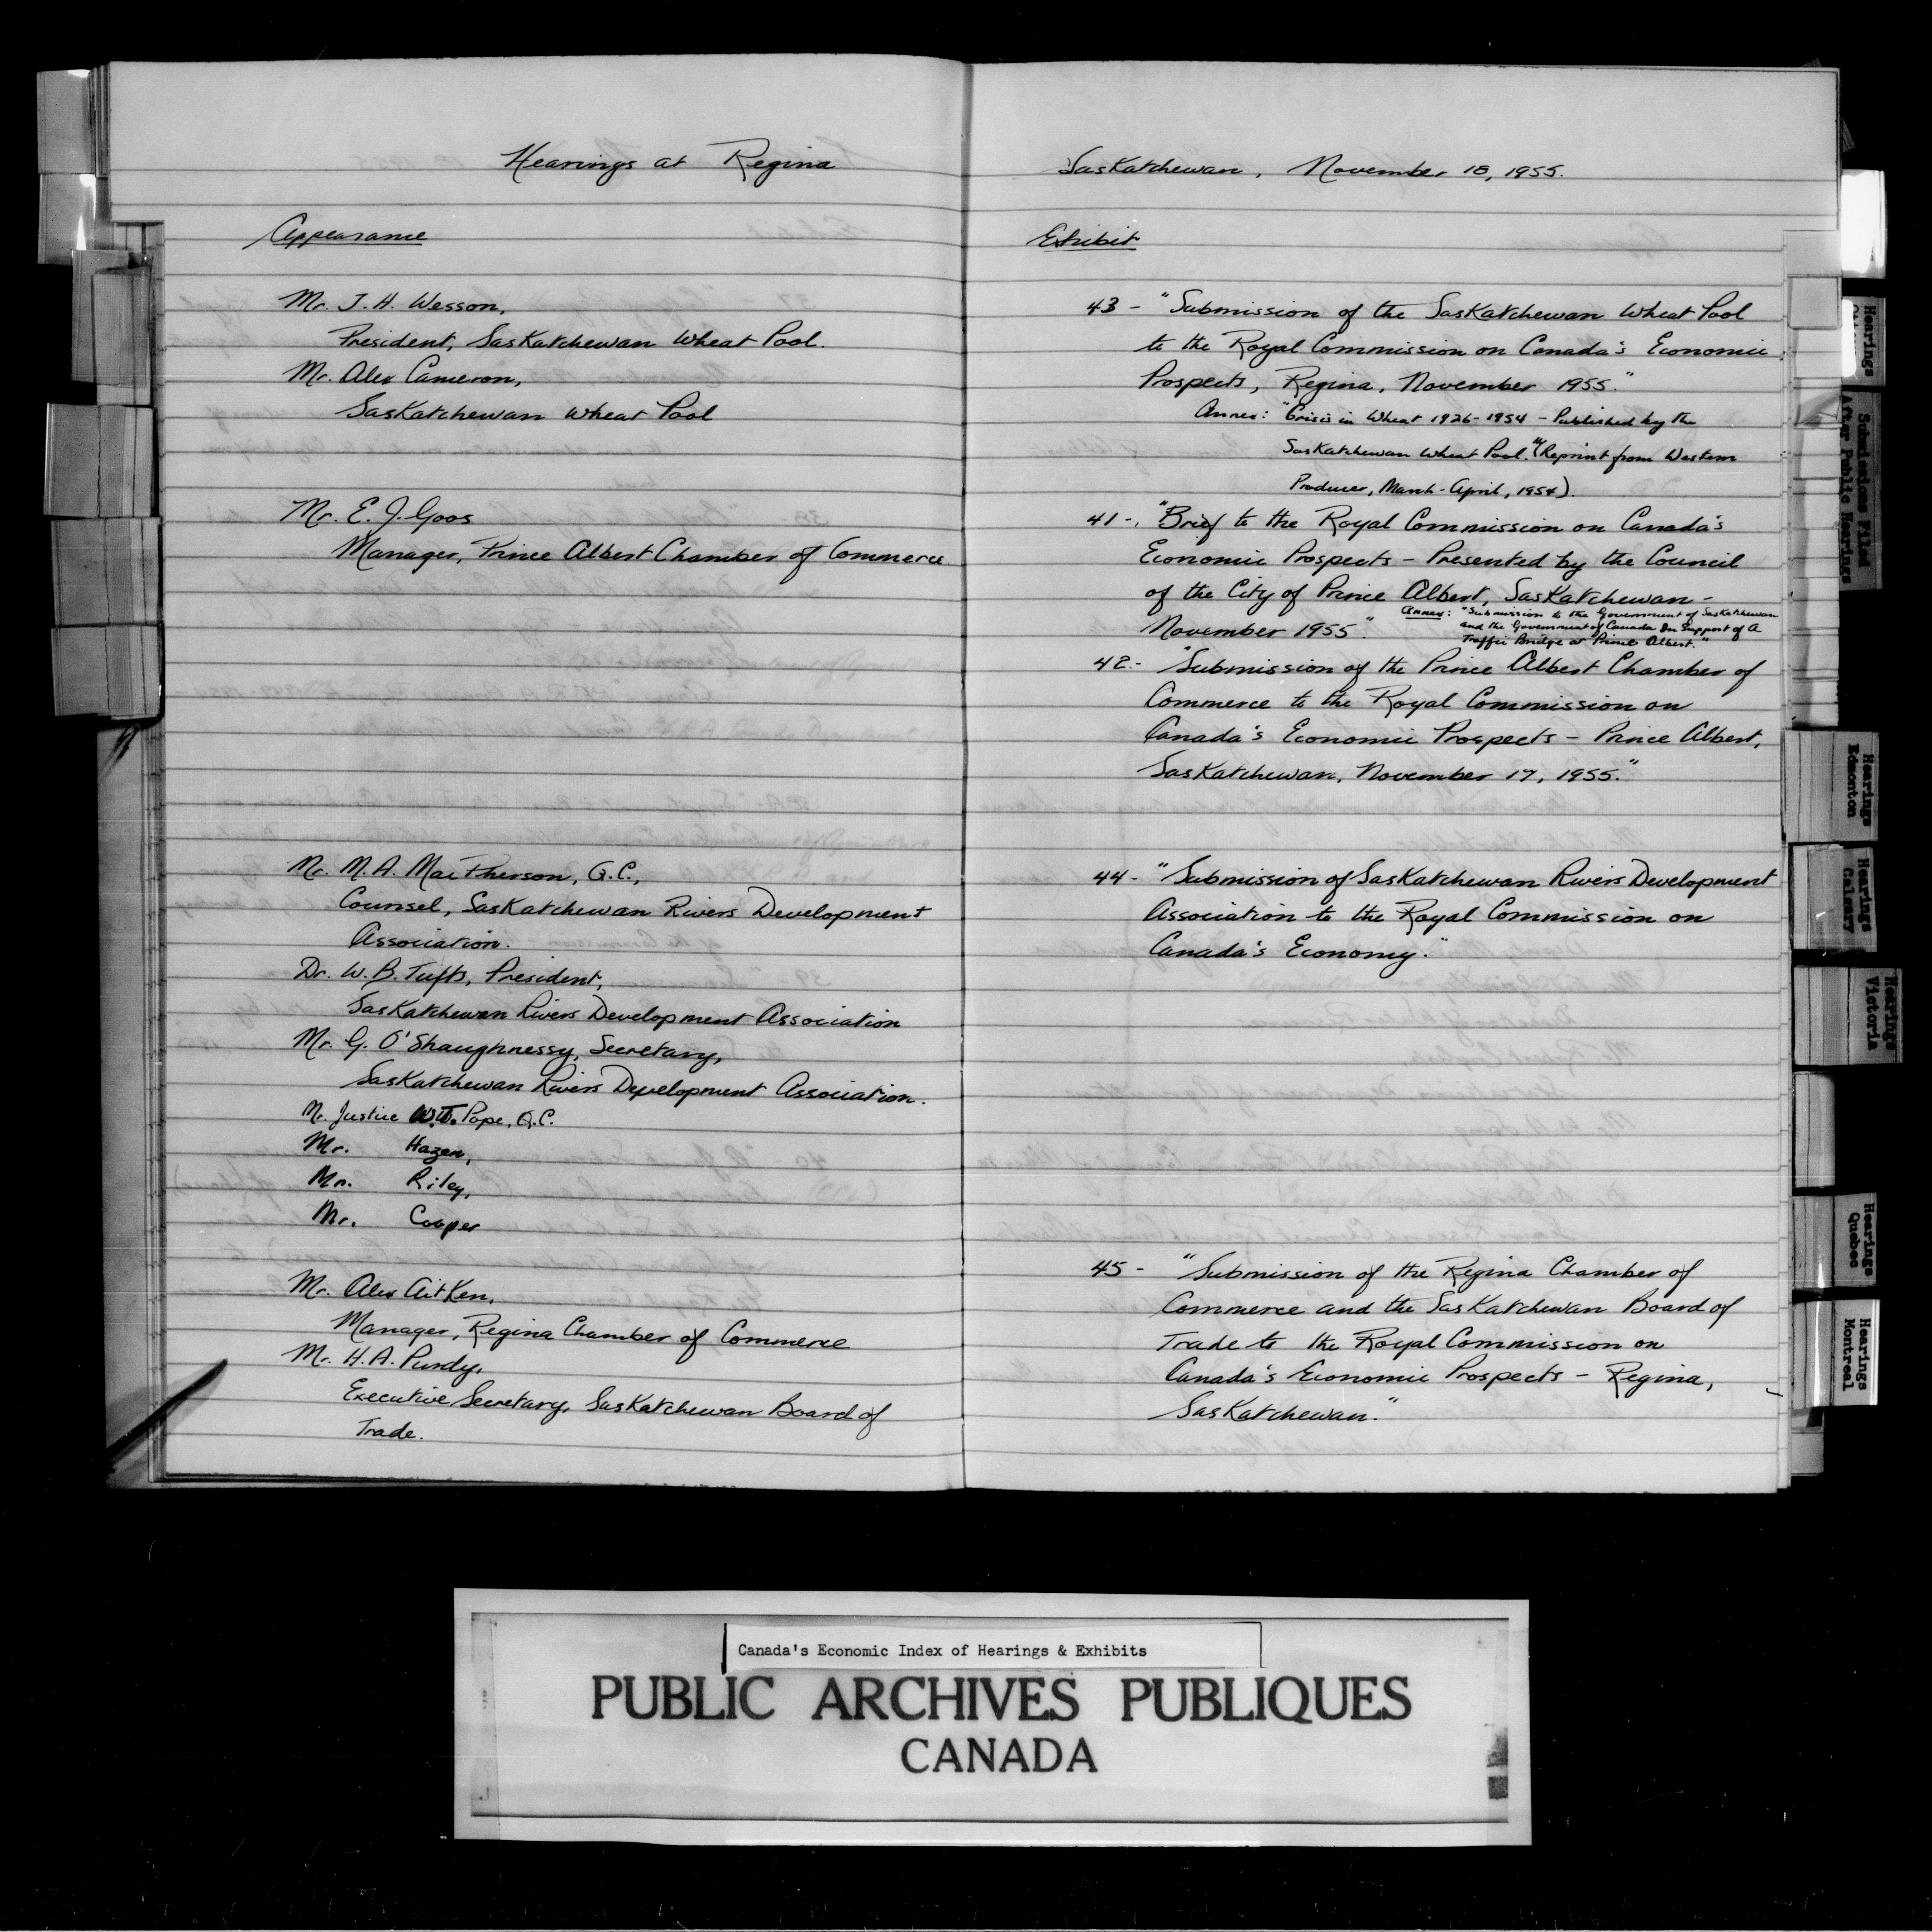 Hearings at Regina
Appearance
Mr. J. H. Wesson,
President, Saskatchewan Wheat Pool.
Mr. Alex Cameron,
Saskatchewan Wheat Pool
Mr. E. J. Goos
Manager, Prince Albert Chamber of Commerce
Mr. M. A. MacPherson, Q.C.,
Counsel, Saskatchewan Rivers Development
Association.
Dr. W. B. Tufts, President,
Saskatchewan Rivers Development Association
Mr. G. O'Shaughnessy, Secretary,
Saskatchewan Rivers Development Association.
Mr. Justice Pope, Q.C.
Mr. Hazen,
Mr. Riley,
Mr. Cooper
Mr. Alex Aitken,
Manager, Regina Chamber of Commerce
Mr. H. A. Purdy,
Executive Secretary, Saskatchewan Board of
Trade.
Saskatchewan, November 18, 1955.
Exhibit
43 - "Submission of the Saskatchewan Wheat Pool
to the Royal Commission on Canada's Economic
Prospects, Regina, November 1955."
Annex: "Crisis in Wheat 1926-1954 - Published by the
Saskatchewan Wheat Pool." (Reprint from Western
Producer, March-April, 1954).
41 - "Brief to the Royal Commission on Canada's
Economic Prospects - Presented by the Council
of the City of Prince Albert, Saskatchewan -
November 1955".
Annex: "Submission to the Government of Saskatchewan
and the Government of Canada In Support of A
Traffic Bridge at Prince Albert."
42 - "Submission of the Prince Albert Chamber of
Commerce to the Royal Commission on
Canada's Economic Prospects - Prince Albert,
Saskatchewan, November 17, 1955."
44 - "Submission of Saskatchewan Rivers Development
Association to the Royal Commission on
Canada's Economy."
45 - "Submission of the Regina Chamber of
Commerce and the Saskatchewan Board of
Trade to the Royal Commission on
Canada's Economic Prospects - Regina,
Saskatchewan."
Hearings
Submissions Filed
After Public Hearings
Hearings
Edmonton
Hearings
Calgary
Hearings
Victoria
Hearings
Quebec
Hearings
Montreal
Canada's Economic Index of Hearings & Exhibits
PUBLIC ARCHIVES PUBLIQUES
CANADA